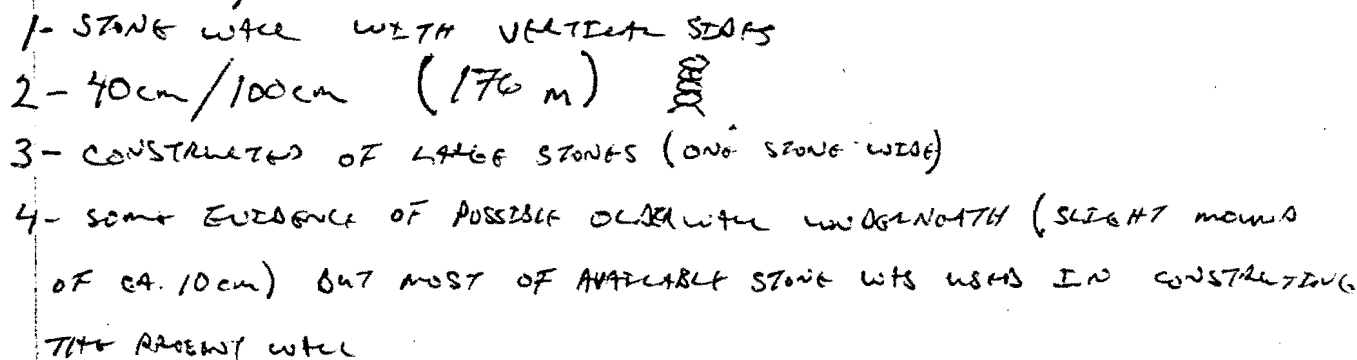 1- STONE WALL WITH VERTICAL SIDES
2- 40cm/100cm (176 m)
3- CONSTRUCTED OF LARGE STONES (ONE STONE WIDE)
4- SOME EVIDENCE OF POSSIBLE OLDER WALL UNDERNEATH (SLIGHT MOUND
OF CA. 10cm) BUT MOST OF AVAILABLE STONE WAS USED IN CONSTRUCTING
THE PRESENT WALL